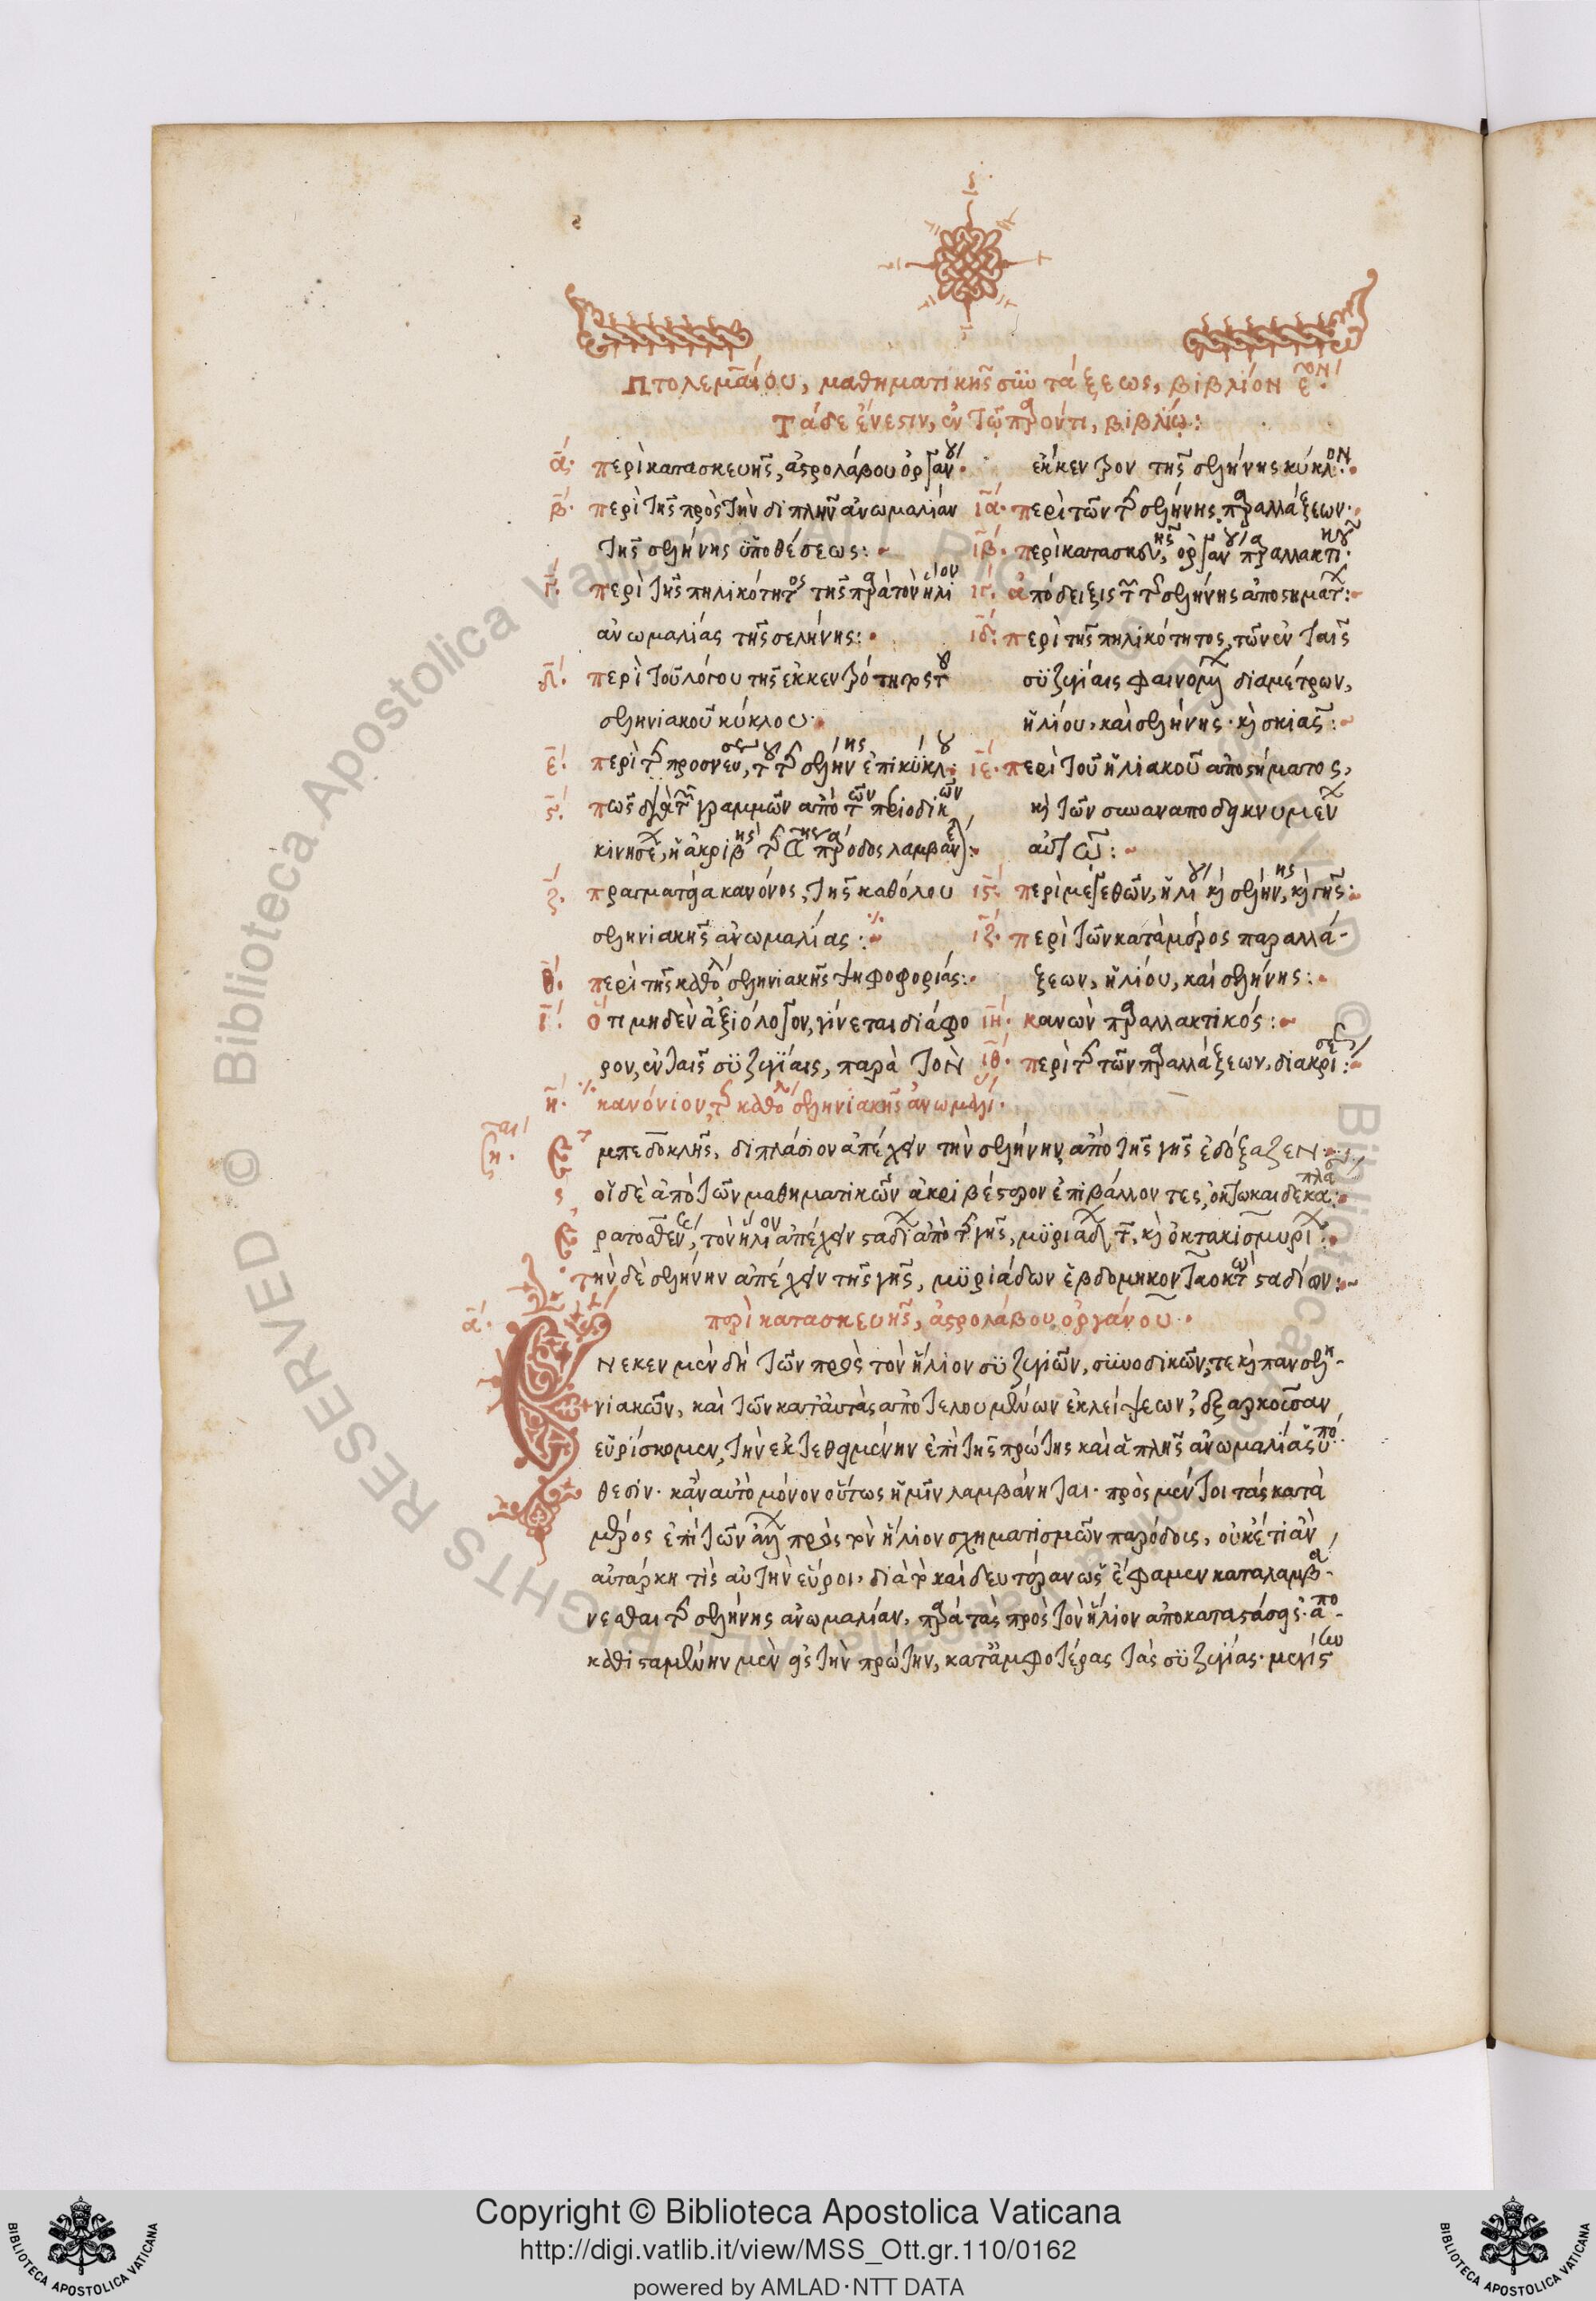 Πτολεμαίου, μαθηματικῆς συντάξεως, βιβλίον ε̅ον:
Τάδε ἔνεστιν, ἐν τῷ παρόντι, βιβλίῳ:
α̅. περὶ κατασκευῆς, ἀστρολάβου ὀργάνου.
β̅. περὶ τῆς πρὸς τὴν διπλῆν ἀνωμαλίαν
τῆς σελήνης ὑποθέσεως:
γ̅. περὶ τῆς πηλικότητος τῆς παρὰ τὸν ἥλιον
ἀνωμαλίας τῆς σελήνης:
δ̅. περὶ τοῦ λόγου τῆς ἐκκεντρότητος τοῦ
σεληνιακοῦ κύκλου.
ε̅. περὶ τῆς προσνεύσεως τοῦ τῆς σελήνης ἐπικύκλου:
ς̅. πῶς διὰ τῶν γραμμῶν ἀπὸ τῶν περιοδικῶν
κινήσεων, ἡ ἀκριβὴς τῆς σελήνης πάροδος λαμβάνεται:
ζ̅. πραγματεία κανόνος, τῆς καθόλου
σεληνιακῆς ἀνωμαλίας:
θ̅. περὶ τῆς καθόλου σεληνιακῆς ψηφοφορίας:
ι̅. ὅτι μηδὲν ἀξιόλογον, γίνεται διάφο
ρον, ἐν ταῖς συζυγίαις, παρὰ τὸν
η̅. κανόνιον, τῆς καθόλου σεληνιακῆς ἀνωμαλίας.
ἔκκεντρον τῆς σελήνης κύκλον:
ι̅α̅. περὶ τῶν τῆς σελήνης παραλλάξεων.
ι̅β̅. περὶ κατασκευῆς, ὀργάνου παραλλακτικοῦ.
ι̅γ̅. ἀπόδειξις τῶν τῆς σελήνης ἀποστημάτων:
ι̅δ̅. περὶ τῆς πηλικότητος, τῶν ἐν ταῖς
συζυγίαις φαινομένων διαμέτρων,
ἡλίου, καὶ σελήνης. καὶ σκιᾶς:
ι̅ε̅. περὶ τοῦ ἡλιακοῦ ἀποστήματος,
καὶ τῶν συναναποδεικνυμένων
αὐτῷ:
ι̅ς̅. περὶ μεγεθῶν, ἡλίου καὶ σελήνης, καὶ γῆς:
ι̅ζ̅. περὶ τῶν κατὰ μέρος παραλλά-
ξεων, ἡλίου, καὶ σελήνης:
ι̅η̅. κανὼν παραλλακτικός:
ι̅θ̅. περὶ τῆς τῶν παραλλάξεων, διακρίσεως:
Ἐμπεδοκλῆς, διπλάσιον ἀπέχειν τὴν σελήνην ἀπὸ τῆς γῆς ἐδόξαζεν
οἱ δὲ ἀπὸ τῶν μαθηματικῶν ἀκριβέστερον ἐπιβάλλοντες, ὀκτωκαιδεκαπλά:
Ἐρατοσθένης, τὸν ἥλιον ἀπέχειν σταδίων ἀπὸ τῆς γῆς, μυριάδων τ̅, καὶ ὀκτακισμυρίων:
τὴν δὲ σελήνην ἀπέχειν τῆς γῆς, μυριάδων ἑβδομηκονταοκτὼ σταδίων:
α̅. περὶ κατασκευῆς, ἀστρολάβου ὀργάνου.
Ἕνεκεν μὲν δὴ τῶν πρὸς τὸν ἥλιον συζυγιῶν, συνοδικῶν, τε καὶ πανσελη-
νιακῶν, καὶ τῶν κατ' αὐτὰς ἀποτελουμένων ἐκλείψεων, ἐξαρκοῦσαν
εὑρίσκομεν, τὴν ἐκτεθειμένην ἐπὶ τῆς πρώτης καὶ ἁπλῆς ἀνωμαλίας ὑπό
θεσιν. κἂν αὐτὸ μόνον οὕτως ἡμῖν λαμβάνηται. πρὸς μέντοι τὰς κατὰ
μέρος ἐπὶ τῶν ἄλλων πρὸς τὸν ἥλιον σχηματισμῶν παρόδοις, οὐκέτι ἂν
αὐτάρκη τὶς αὐτὴν εὕροι, διὰ τὸ καὶ δευτέραν ὡς ἔφαμεν καταλαμβά-
νεσθαι τῆς σελήνης ἀνωμαλίαν, παρὰ τὰς πρὸς τὸν ἥλιον ἀποστάσεις. ἀπο-
καθισταμένην μὲν εἰς τὴν πρώτην, κατ' ἀμφοτέρας τὰς συζυγίας. μεγίστην
Copyright © Biblioteca Apostolica Vaticana
http://digi.vatlib.it/view/MSS_Ott.gr.110/0162
powered by AMLAD·NTT DATA
BIBLIOTECA APOSTOLICA VATICANA
BIBLIOTECA APOSTOLICA VATICANA